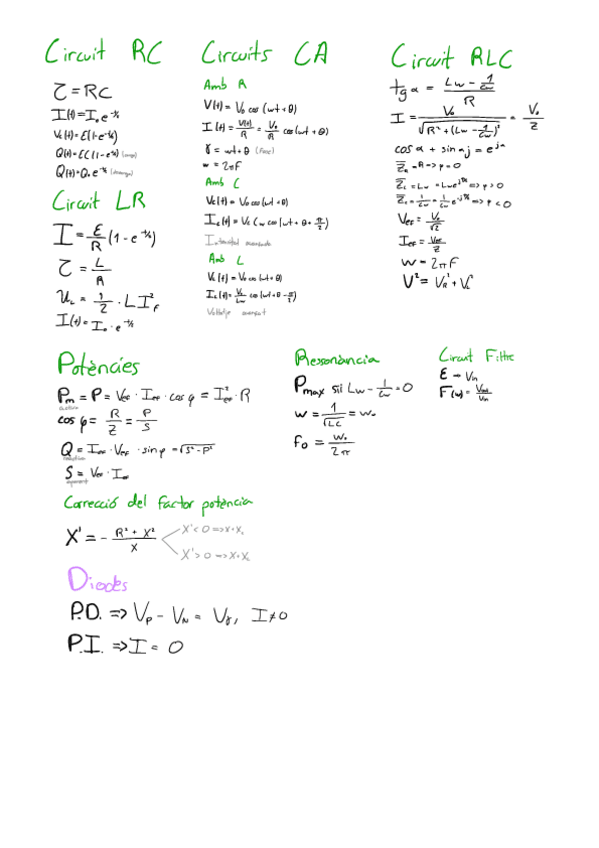 Circuit RC
τ = RC
I(t) = I₀ e^(-t/τ)
Vc(t) = ℰ(1-e^(-t/τ))
Q(t) = ℰC(1-e^(-t/τ))
Q(t) = Q₀ e^(-t/τ)
Circuit LR
I = ℰ/R (1 - e^(-t/τ))
τ = L/R
U_L = 1/2 · L I_F²
I(t) = I₀ · e^(-t/τ)
Circuits CA
Amb R
V(t) = V₀ cos (ωt + θ)
I(t) = V(t)/R = V₀/R cos (ωt + θ)
γ = ωt + θ (Fase)
w = 2πF
Amb C
Vc(t) = V₀ cos (wt + θ)
Ic(t) = V₀ C w cos (wt + θ + π/2)
Intensitat avançada
Amb L
V_L(t) = V₀ cos (wt + θ)
I_L(t) = V₀/Lw cos (wt + θ - π/2)
Voltatje avançat
Circuit RLC
tg α = (Lw - 1/Cw) / R
I = V₀ / √(R² + (Lw - 1/Cw)²) = V₀/Z
cos α + sin α j = e^(jα)
Z̅_R = R => φ = 0
Z̅_L = Lw = Lw e^(jπ/2) => φ > 0
Z̅_C = 1/Cw = 1/Cw e^(-jπ/2) => φ < 0
Vef = V₀/√2
Ief = Vef/Z
w = 2πF
V² = V_R² + V_L²
Potències
Pm = P = Vef · Ief · cos φ = Ief² · R
activa
cos φ = R/Z = P/S
Q = Ief · Vef · sin φ = √(S² - P²)
reactiva
S = Vef · Ief
aparent
Correcció del factor potència
X' = - (R² + X²)/X
X' < 0 => X' = Xc
X' > 0 => X' = X_L
Ressonància
Pmax sii Lw - 1/Cw = 0
w = 1/√LC = w₀
F₀ = w₀/2π
Circuit Filtre
ℰ → Vin
F(w) = Vout/Vin
Diodes
P.D. => Vp - Vn = Vγ, I ≠ 0
P.I. => I = 0